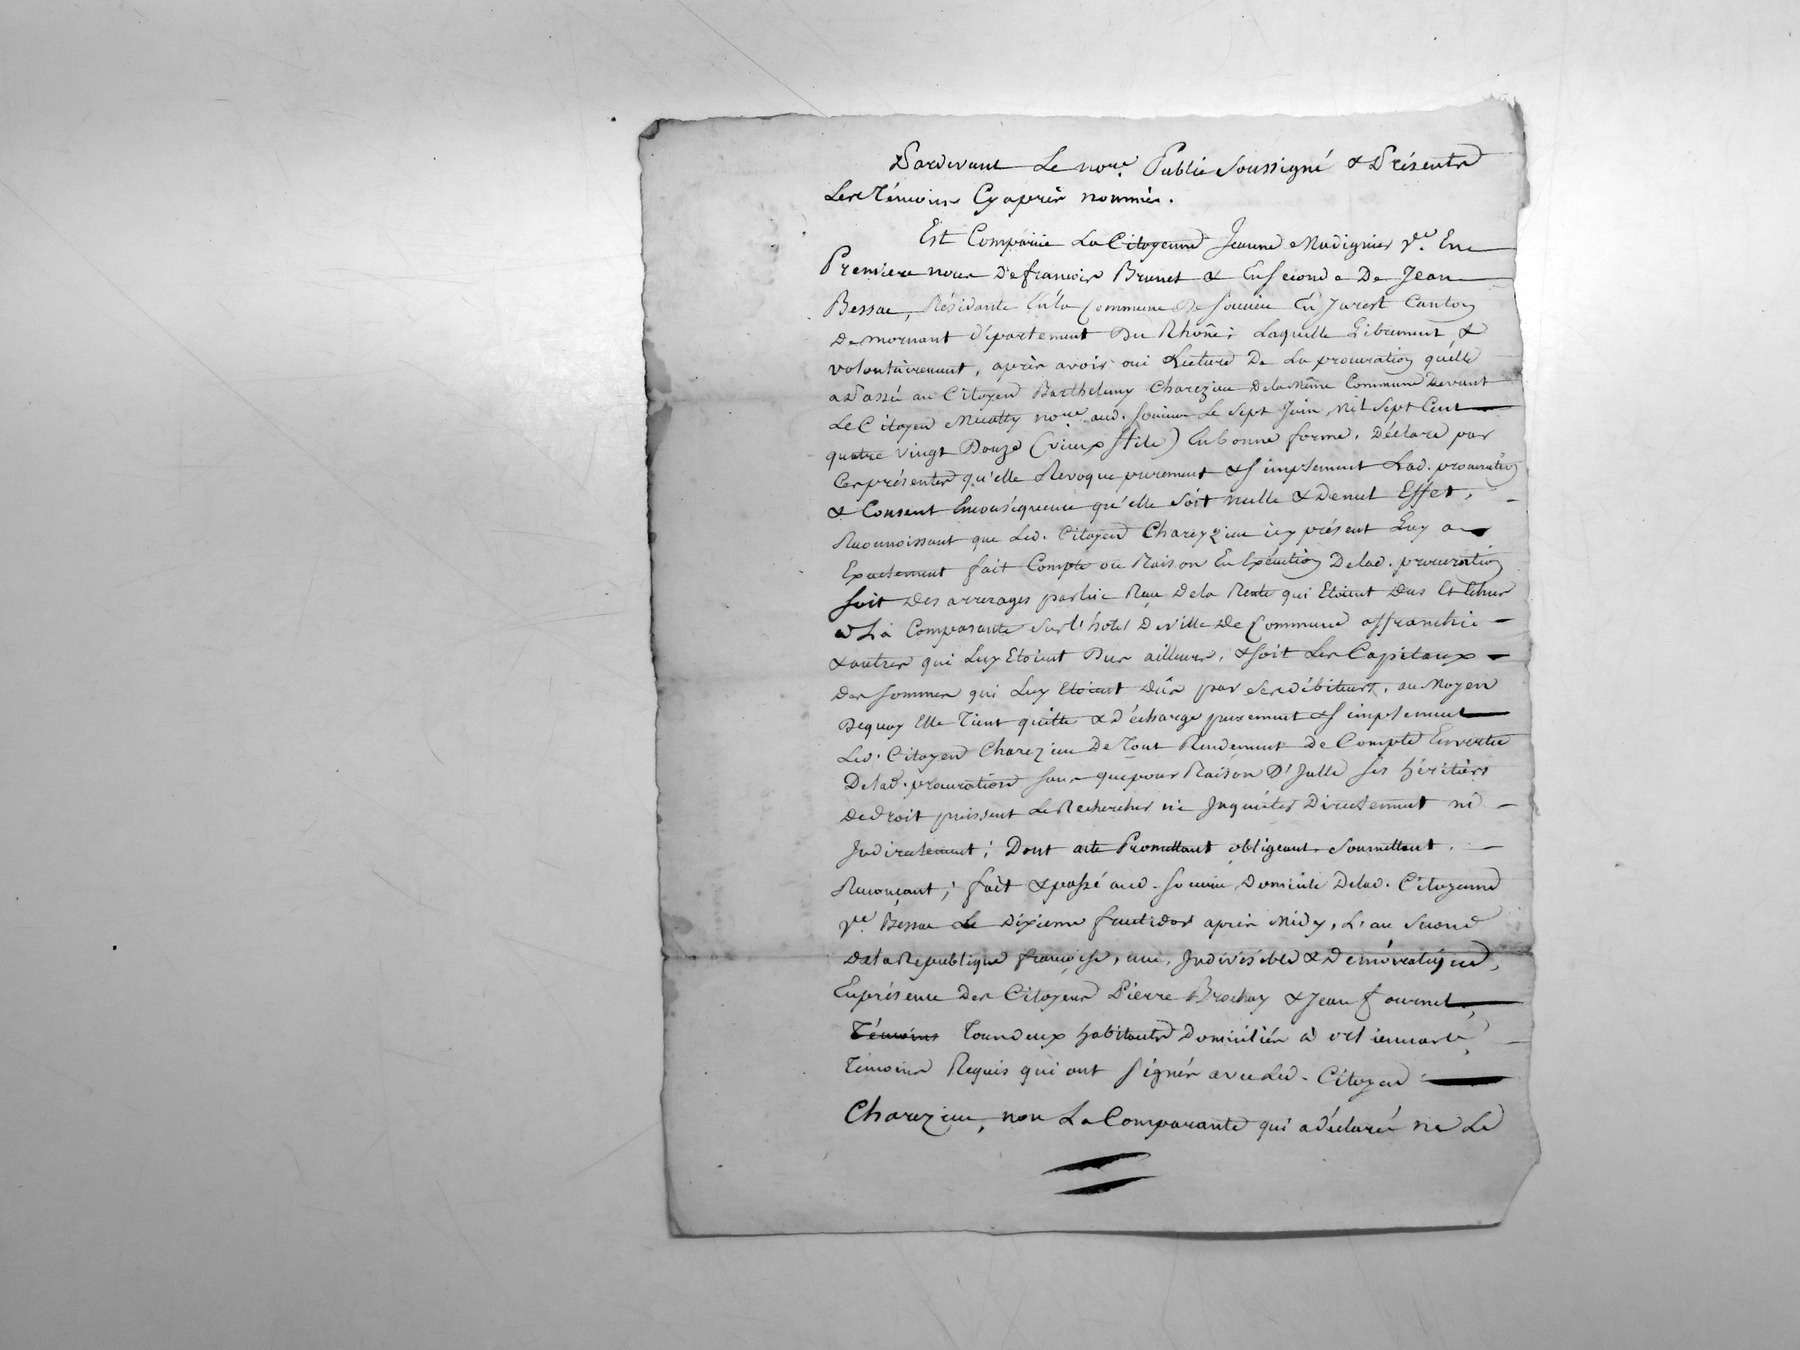 Pardevant Le nore. Public Soussigné & Présents
Les Témoins Cy après nommés.
Est Comparüe La Citoyenne Jeanne Madignier Ve. En
Premiere noces De françois Brunet & En Seconde De Jean
Bessac, Résidante En la Commune De Soucieu En Jarest Canton
De mornant Département Du Rhône; Laquelle Librement, &
volontairement, après avoir oui Lecture De La procuration quelle
a Passé au Citoyen Barthelemy Charezieu De la Même Commune Devant
Le Citoyen nore. aud. Soucieu Le Sept Juin Mil Sept Cent
quatre vingt Douze (vieux Stile) En bonne forme, Déclare par
Ces présentes qu'elle Revoque purement & Simplement Lad. procuration
& Consent En conséquence qu'elle Soit nulle & De nul Effet,
Reconnoissant que Led. Citoyen Chareyzieu icy présent Luy a
Exactement fait Compte ou Raison En Exécution De lad. procuration
Soit Des arrerages par lui Reçu De la Rente qui Etoient Dus Et Echus
a La Comparante Sur l'hotel De ville De Commune affranchie
& autres qui Luy Etoient Dus ailleurs, & Soit Les Capitaux
Des Sommes qui Luy Etoient Dûs par Ses Débiteurs, au Moyen
Dequoy Elle Tient quitte & Décharge purement & Simplement
Led. Citoyen Charezieu De Tout Rendement De Compte En vertu
De lad. procuration Sans que pour Raison D'Jcelle Ses héritiers
De droit puissent Le Rechercher ni Jnquiéter Directement ni
Jndirectement; Dont acte Promettant, obligeant, Soumettant,
Renonçant; fait & passé aud. Soucieu Domicile De lad. Citoyenne
Ve. Bessac Le Dixieme fructidor après Midy, L'an Second
De la République françoise, une, Jndivisible & Démocratique,
En présence Des Citoyens Pierre Brochay & Jean fournel
Témoins Tous deux habitants Domiciliés à
Témoins Requis qui ont Signés avec Led. Citoyen
Charezieu, non La Comparante qui a déclaré ne Le